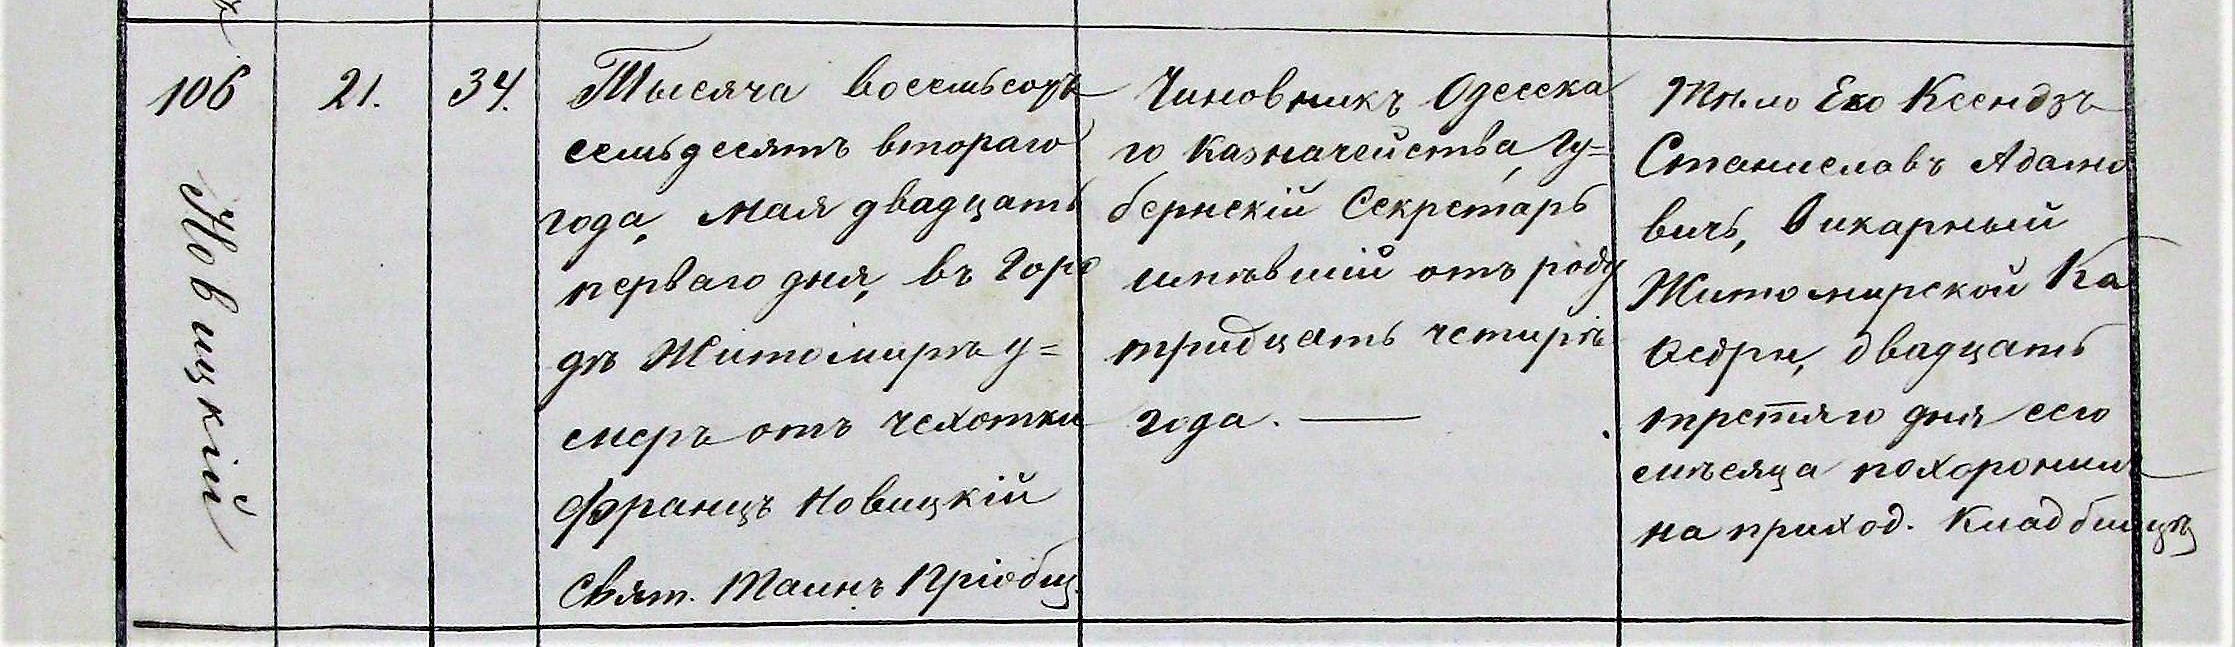 106
Новицкій
21.
34.
Тысяча восемьсотъ
семьдесятъ втораго
года, мая двадцать
перваго дня, въ Горо
дѣ Житомирѣ у=
меръ отъ чехотки
Францъ Новицкій
Свят. Таинъ Пріобщ.
Чиновникъ Одесска
го Казначейства, Гу=
бернскій Секретарь
имѣвшій отъ роду
тридцать четырѣ
года. —
Тѣло Его Ксендзъ
Станиславъ Адамо
вичъ, Викарный
Житомирской Ка
ѳедры, двадцать
третяго дня сего
мѣсяца похоронилъ
на приход. Кладбищѣ